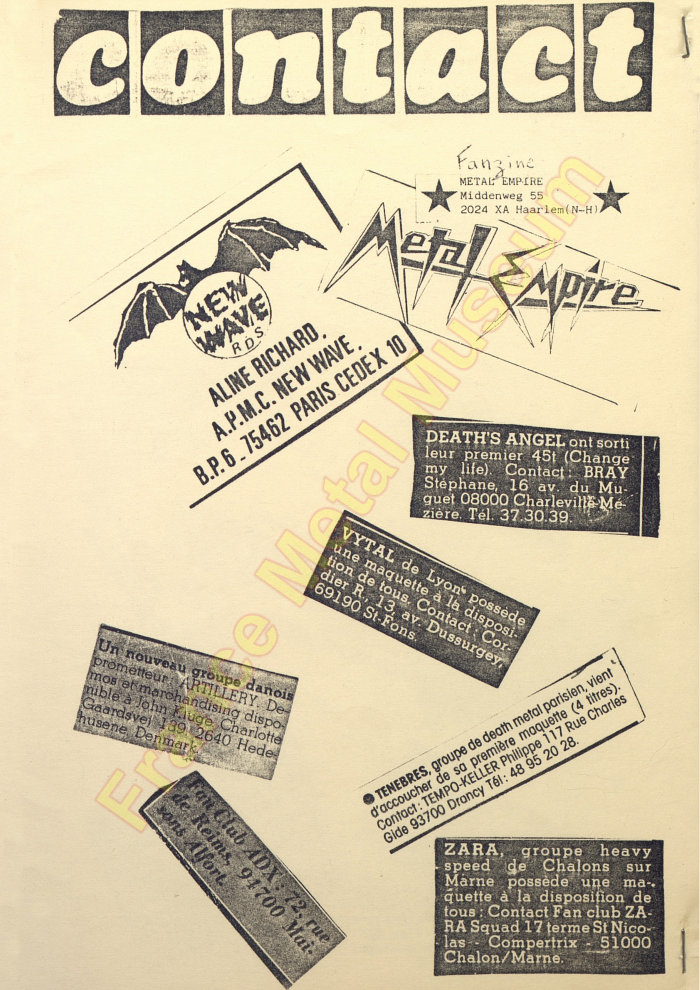 contact
Fanzine
METAL EMPIRE
Middenweg 55
2024 XA Haarlem(N-H)
Metal Empire
NEW
WAVE
RDS
ALINE RICHARD.
A.P.M.C. NEW WAVE.
B.P.6_75462 PARIS CEDEX 10
DEATH'S ANGEL ont sorti
leur premier 45t (Change
my life). Contact : BRAY
Stéphane, 16 av. du Mu-
guet 08000 Charleville-Mé-
zière. Tél. 37.30.39.
VYTAL de Lyon possède
une maquette à la disposi-
tion de tous. Contact : Cor-
dier R. 13, av. Dussurgey,
69190 St-Fons.
Un nouveau groupe danois
prometteur : ARTILLERY. De-
mos et marchandising dispo-
nible à John Kluge, Charlotte
Gaardsvej 169, 2640 Hede-
husene Denmark.
TENEBRES, groupe de death metal parisien, vient
d'accoucher de sa première maquette (4 titres).
Contact : TEMPO-KELLER Philippe 117 Rue Charles
Gide 93700 Drancy Tél : 48 95 20 28.
Fan Club ADX : 72, rue
de Reims, 94700 Mai-
sons Alfort.
ZARA, groupe heavy
speed de Chalons sur
Marne possède une ma-
quette à la disposition de
tous : Contact Fan club ZA-
RA Squad 17 terme St Nico-
las - Compertrix - 51000
Chalon/Marne.
France Metal Museum